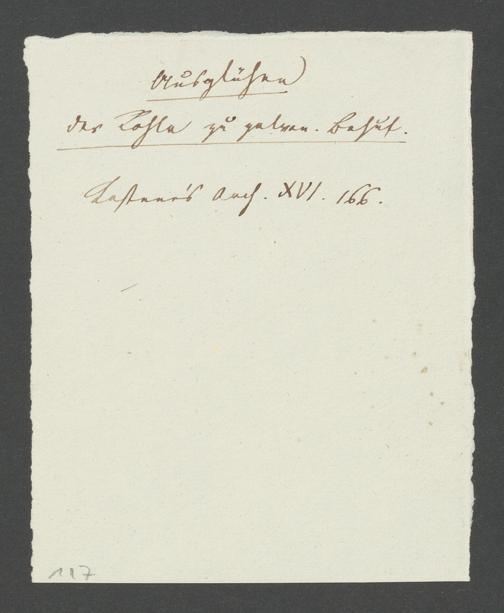 Ausglühen
der Kohle zu galvan. Behuf.
Kastner's Arch. XVI. 166.
117